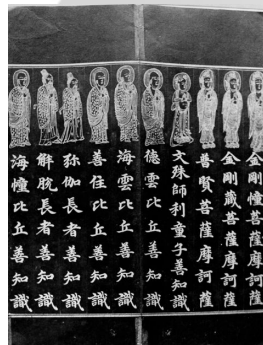 金剛幢菩薩摩訶薩
金剛藏菩薩摩訶薩
普賢菩薩摩訶薩
文殊師利童子善知識
德雲比丘善知識
海雲比丘善知識
善住比丘善知識
弥伽長者善知識
解脫長者善知識
海幢比丘善知識